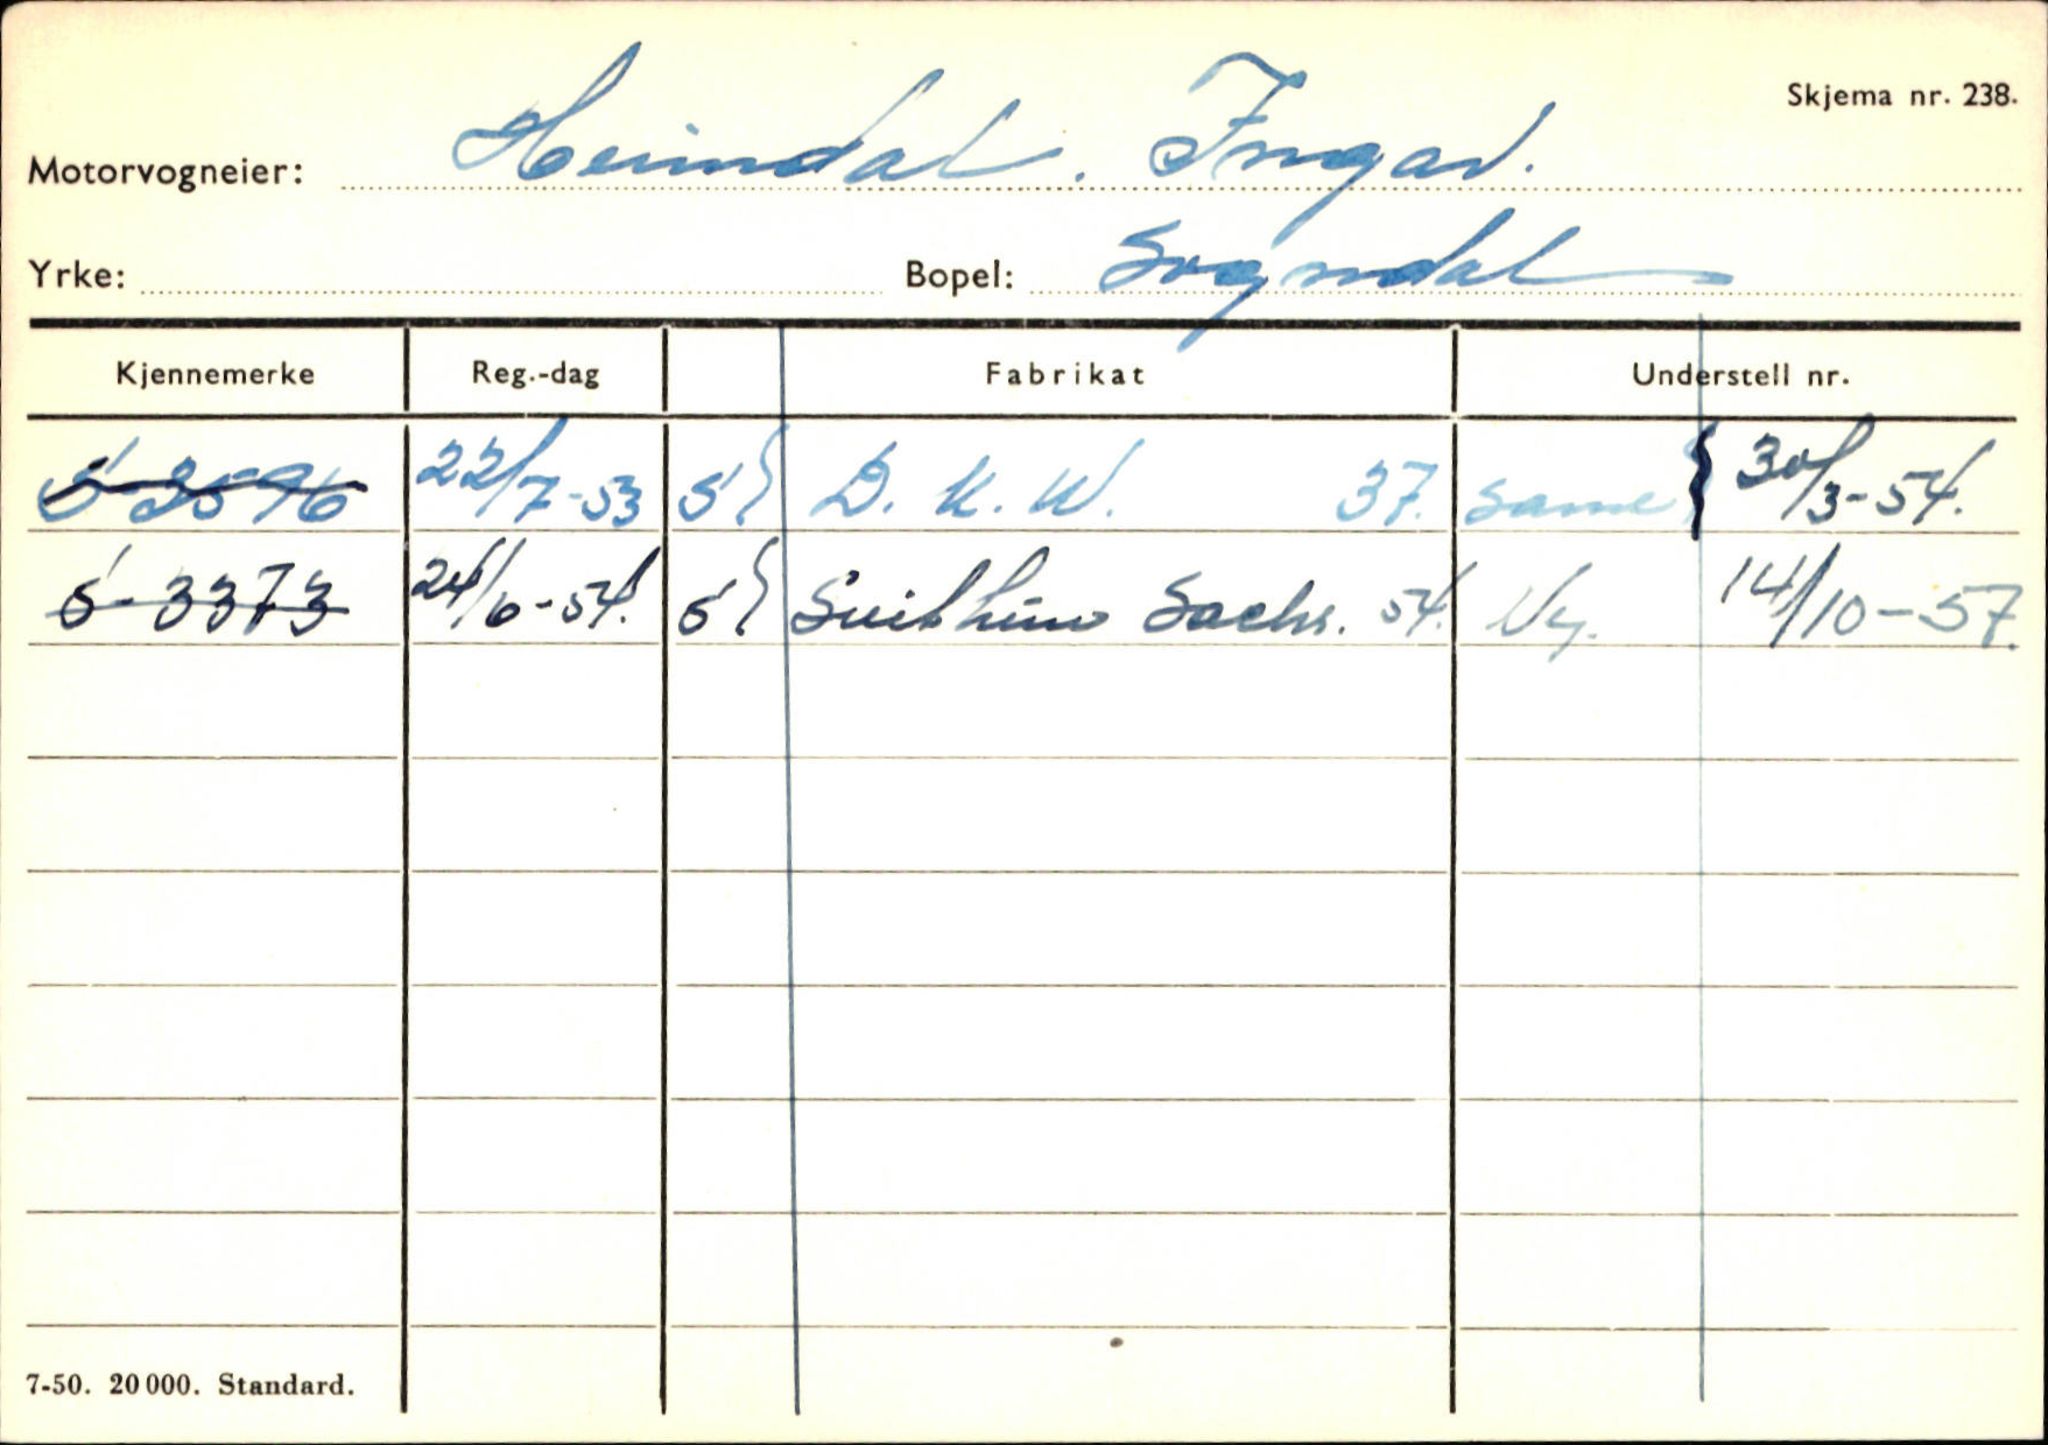 Skjema nr. 238.
Motorvogneier: Heimdal. Ingar.
Yrke: Bopel: Sogndal
Kjennemerke Reg.-dag Fabrikat Understell nr.
S-3596 22/7-53 5 } D. K. W. 37. same } 30/3-54.
S-3373 24/6-54. 5 } Svithun Sachs. 54. Ny. 14/10-57.
7-50. 20 000. Standard.